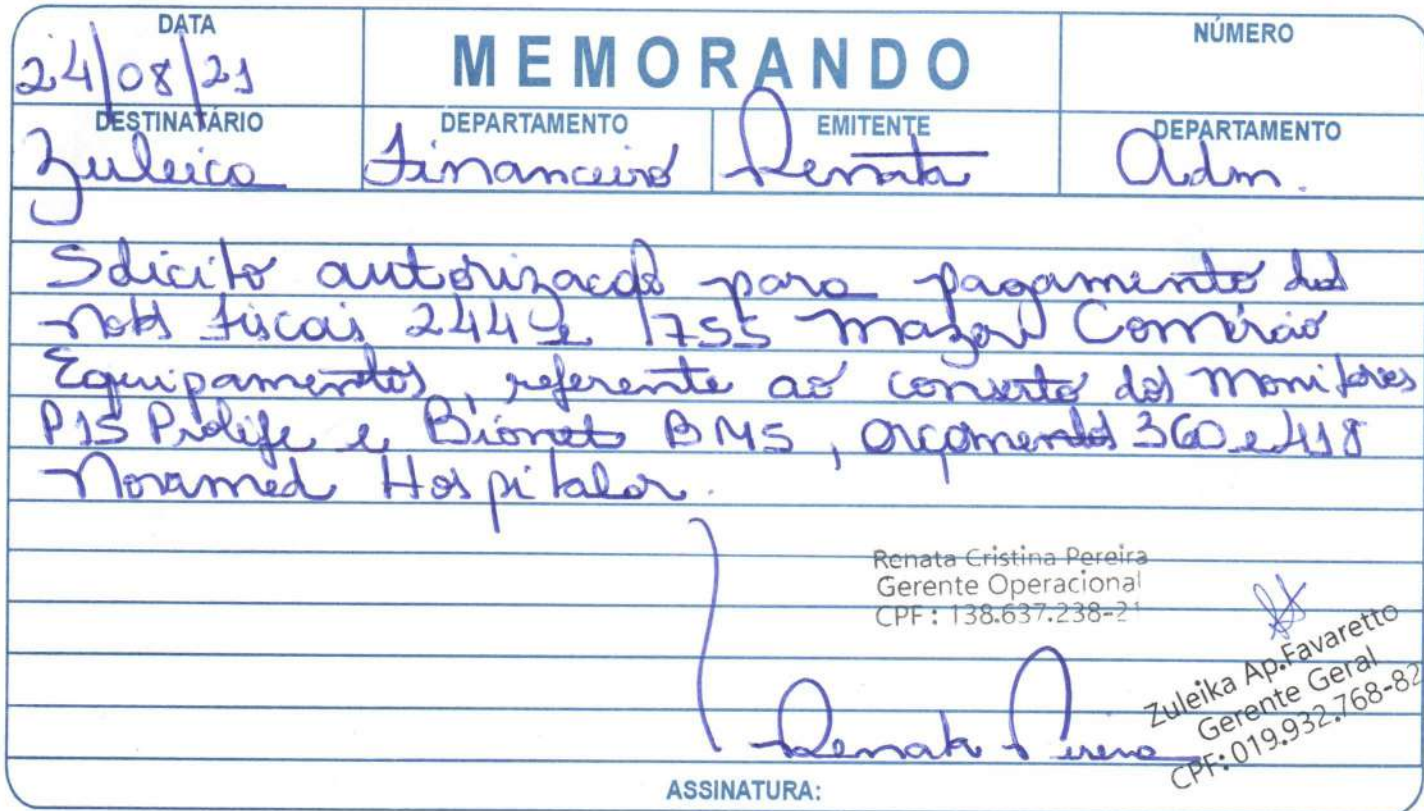 DATA
24/08/21
MEMORANDO
NÚMERO
DESTINATÁRIO
Zuleica
DEPARTAMENTO
Financeiro
EMITENTE
Renata
DEPARTAMENTO
Adm.
Solicito autorização para pagamento das
notas fiscais 244 e 1755 Comércio
Equipamentos, referente ao conserto dos monitores
P15 Prolife e Bionet BM5, orçamentos 360 e 418
Novamed Hospitalar.
Renata Cristina Pereira
Gerente Operacional
CPF: 138.637.238-21
Zuleika Ap. Favaretto
Gerente Geral
CPF: 019.932.768-82
Renata Pereira
ASSINATURA: